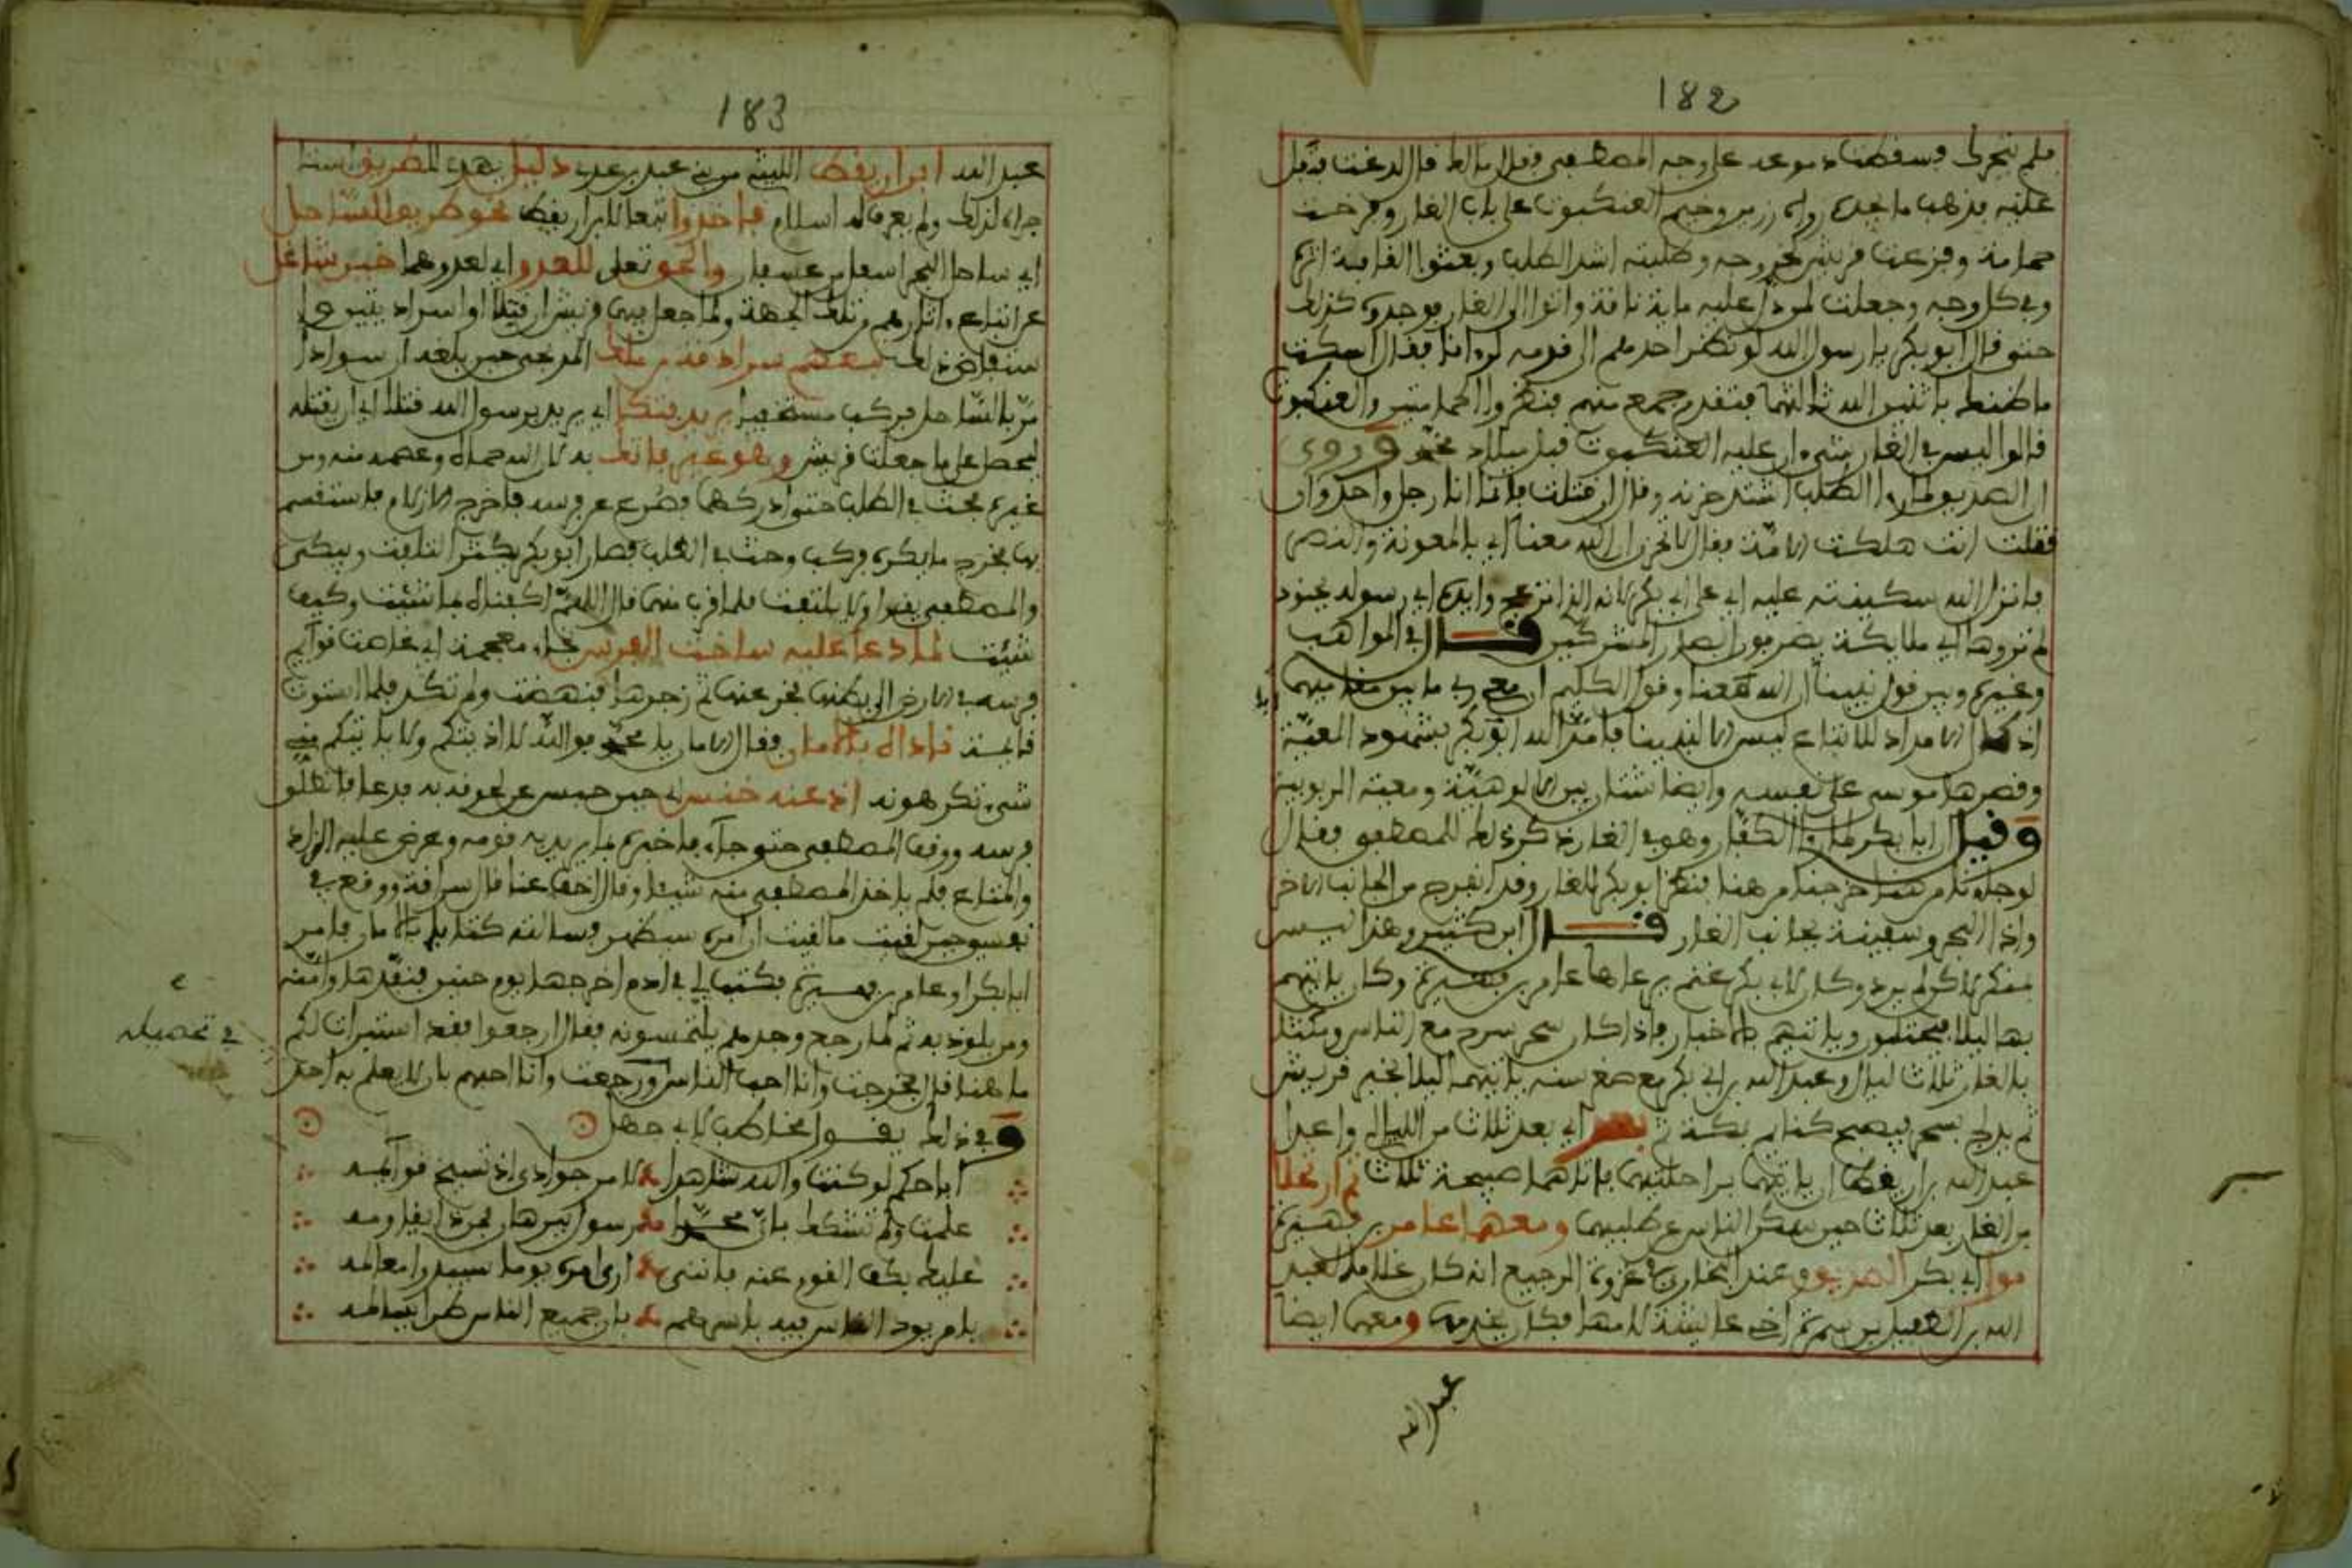 182
فلم يتحرك وسقطت دموعه على وجه المصطفى فقال مالك قال لدغت فتفل
عليه فذهب ما يجده ولابي رزين وخيم العنكبوت على باب الغار وفرخت
حمامة وفزعت قريش لخروجه وطلبته اشد الطلب وبعثوا القافة اثره
وفي كل وجه وجعلت لمن رد عليه ماية ناقة واتوا الى الغار فوجدوه كذلك
حتى قال ابو بكر يا رسول الله لو نظر احدهم الى قدمه لرءانا فقال اسكت
ما ظنك باثنين الله ثالثهما فتقدم جمع منهم فنظروا الحمامتين والعنكبوت
قالوا ليس في الغار شيء وان عليه العنكبوت قبل ميلاد محمد وروي
ان الصديق لما راا الطلب اشتد حزنه وقال ان قتلت فانما انا رجل واحد وان
قتلت انت هلكت الامة فقال لا تحزن ان الله معنا اي بالمعونة والنصر
فانزل الله سكينته عليه اي على ابي بكر لانه الذي انزعج وايده اي رسوله بجنود
لم تروها اي ملايكة يصرفون ابصار المشركين قال في المواهب
وغيره وبين قول نبينا ان الله معنا وقول الكليم ان معي ربي ما بين مقاميهما
اذ الامداد للاتباع ليس الا لنبينا فامد الله ابو بكر بشهود المعية
وقصرها موسى على نفسه وايضا شتان بين الالوهية ومعية الربوبية
وقيل ان ابا بكر لما راا الكفار وهو في الغار ذكر ذلك للمصطفى فقال
لو جاءونا من هنا خرجنا من هنا فنظر ابو بكر للغار وقد انفرج من الجانب الاخر
واذا البحر وسفينة بجانب الغار قال ابن كثير وهذا ليس
بمنكر لاكن لم يرد وكان لابي بكر غنم يرعاها عامر بن فهيرة وكان ياتيهم
بها ليلا فيحتلبون وياتيهم بالاخبار فاذا كان سحر سرح مع الناس ومكثا
بالغار ثلاث ليال وعبد الله بن ابي بكر مع صغر سنه ياتيهما ليلا بخبر قريش
ثم يدلج بسحر فيصبح كبايت بمكة ثم بعد اي بعد ثلاث من الليالي واعدا
عبد الله بن اريقط ان ياتيهما براحلتيهما فاتاهما صبيحة ثلاث ثم ارتحلا
من الغار بعد ثلاث حين سكن الناس عن طلبهما ومعهما عامر بن فهيرة
مولى ابي بكر الصديق وعند البخاري في غزوة الرجيع انه كان غلاما لعبد
الله بن الطفيل بن سخبرة اخي عايشة لامها فكان يخدمهما ومعهما ايضا
عبد الله
183
عبد الله ابن اريقط الليثي من بني عبد بن عدي دليل بهدي الطريق استا
جراه لذلك ولم يعرف له اسلام فاخذوا تبعا لابن اريقط نحو طريق الساحل
اي ساحل البحر اسفل من عسفان والحق تعلى للعدو اي لعدوهما خير شاغل
عن اتباع ءاثارهم من تلك الجهة ولما جعل بينى قريش ان قتلا او اسرا دية
سراقة بن ملك المدلجي حين بلغه ان سوادا
مر بالساحل فركب مستخفيا يريد فتكا اي يريد برسول الله قتلا اي ان يقتله
ليحصل على ما جعلت قريش وهو غير فاتك به لان الله حماه وعصمه منه ومن
غيره بحث في الطلب حتى ادركهما فصرع عن فرسه فاخرج الازلام فاستقسم
بها فخرج ما يكره فركب وحث في الطلب فصار ابو بكر يكثر التلفت ويبكي
والمصطفى يقرا ولا يلتفت فلما قرب منهما قال اللهم اكفناه بما شئت وكيف
شئت لما دعا عليه ساخت الفرس بخاء معجمة اي غاصت قوايم
فرسه في الارض الى بطنها فخر عنها ثم زجرها فنهضت ولم تكد فلما استوت
قايمة ناداه بالامان فقال الامان يا محمد فوالله لا اذيتكم ولا ياتيكم مني
شيء تكرهونه اذ عنه خنس اي حين حبس عن لحوقه به فدعا فانطلق
فرسه ووقف المصطفى حتى جاءه فاخبره بما يريد به قومه وعرض عليه الزاد
والمتاع فلم ياخذ المصطفى منه شيئا وقال اخف عنا قال سراقة ووقع في
نفسي حين لقيت ما لقيت ان امره سيظهر وسالته كتابا بالامان فامر
ابا بكر او عامر بن فهيرة فكتب لي في ادم اخرجها يوم حنين فنفذها وامنه
ومن يلوذ به ثم لما رجع وجدهم يلتمسونه فقال ارجعوا فقد استبرات لكم
ما هنا قال فخرجت وانا احب الناس ورجعت وانا احبهم بان لا يعلم به احد
وفي ذلك يقول مخاطبا لابي جهل
اباحكم لو كنت والله شاهدا لامر جوادي اذ تسيخ قوايمه
علمت ولم تشكك بان محمدا رسول ببرهان فمن ذا يقاومه
عليك بكف القوم عنه فانني ارى امره يوما ستبدو معالمه
بامر يود الناس فيه باسرهم بان جميع الناس طرا يسالمه
في تحصيله